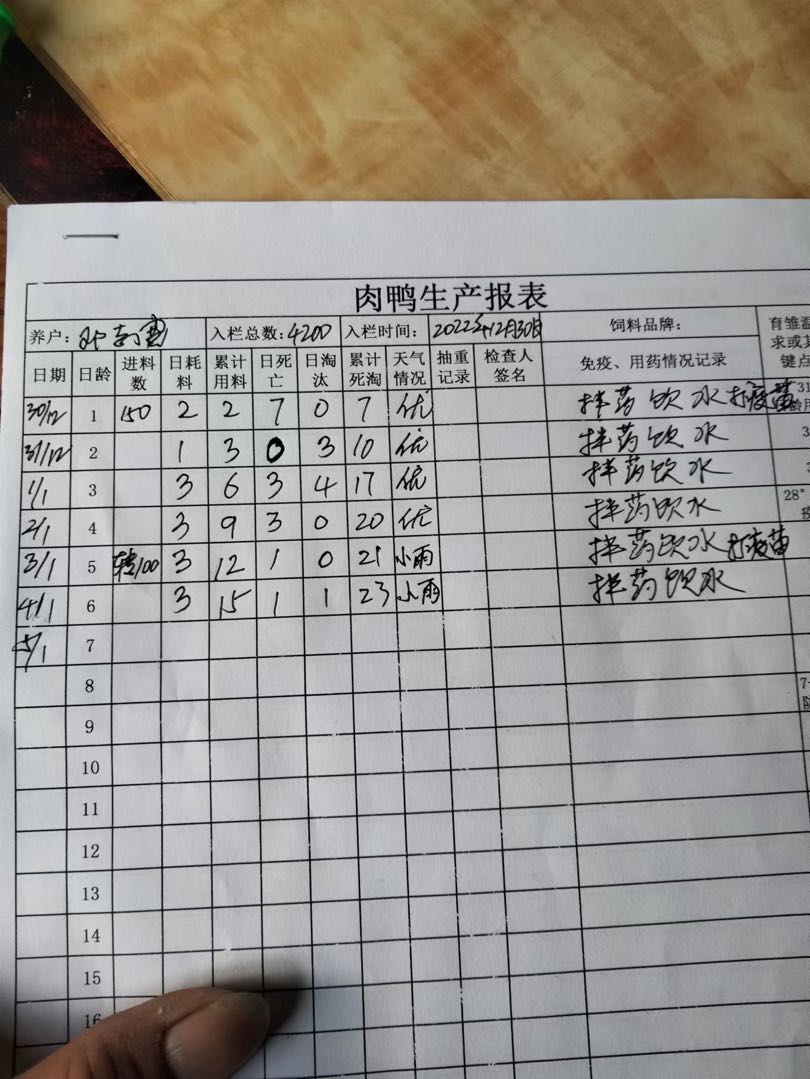 肉鸭生产报表
养户: 入栏总数:4200 入栏时间:2022年12月30日 饲料品牌: 育雏温
求或其
键点
日期 日龄 进料数 日耗料 累计用料 日死亡 日淘汰 累计死淘 天气情况 抽重记录 检查人签名 免疫、用药情况记录
30/12 1 150 2 2 7 0 7 优 拌药饮水打疫苗
31/12 2 1 3 0 3 10 优 拌药饮水
1/1 3 3 6 3 4 17 优 拌药饮水
2/1 4 3 9 3 0 20 优 拌药饮水 28°
3/1 5 转100 3 12 1 0 21 小雨 拌药饮水打疫苗
4/1 6 3 15 1 1 23 小雨 拌药饮水
5/1 7
8
9
10
11
12
13
14
15
16